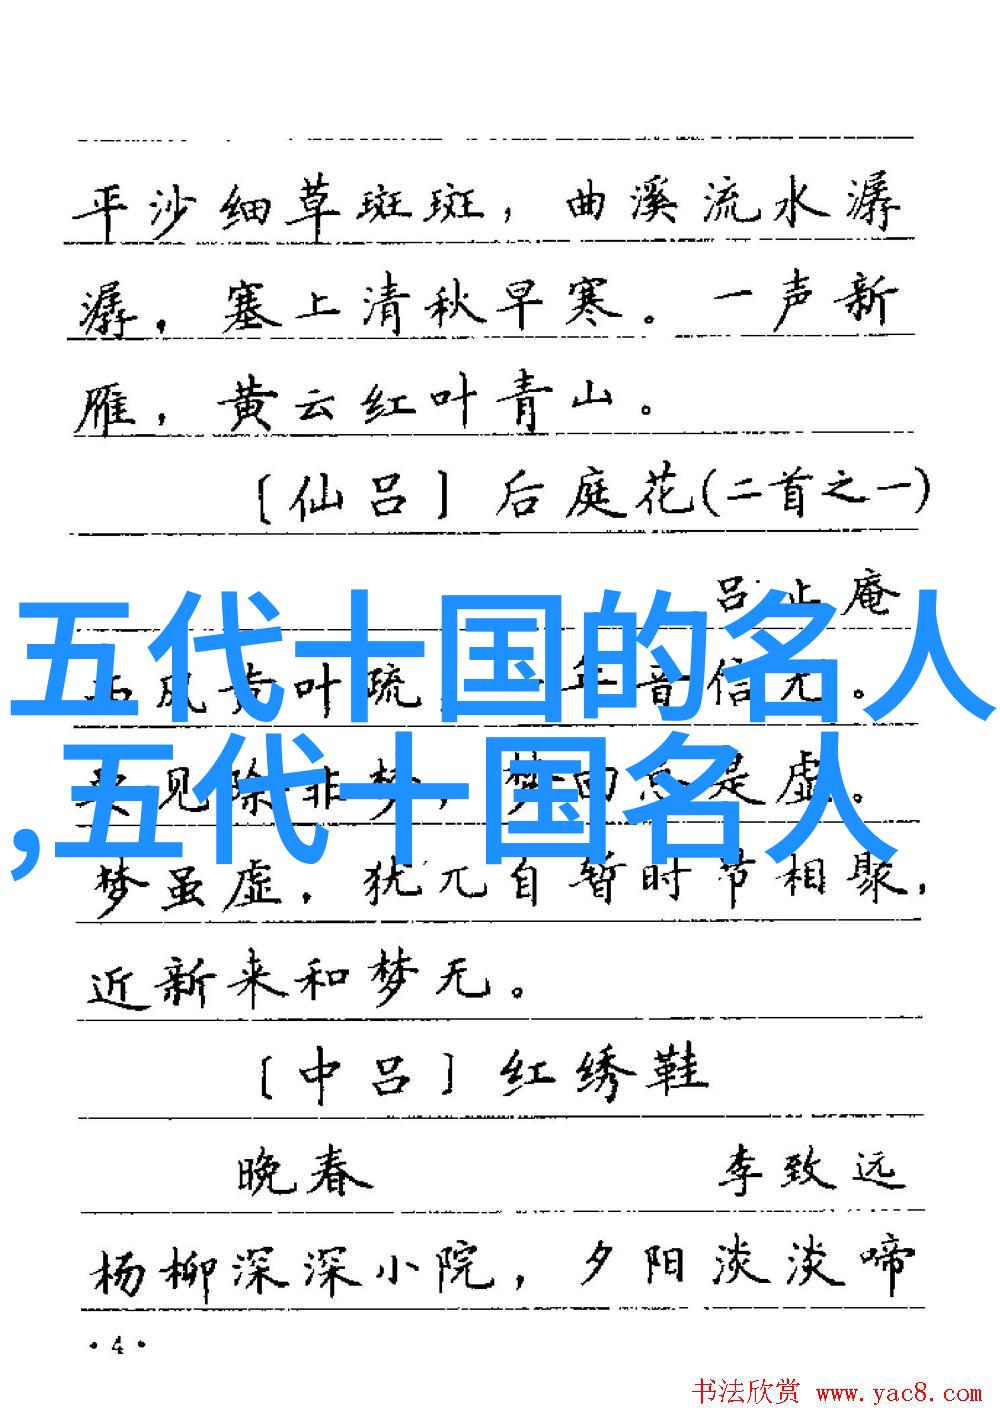 平沙细草斑斑，曲溪流水潺
潺，塞上清秋早寒。一声新
雁，黄云红叶青山。
〔仙吕〕后庭花(二首之一)
吕止庵
五代十国的名人
叶疏 年音信无。
,五代十国名人
见除非梦，梦 是虚。
梦虽虚，犹兀自暂时节相聚，
近新来和梦无。
〔中吕〕红绣鞋
晚春 李致远
杨柳深深小院，夕阳淡淡啼
·4·
书法欣赏 www.yac8.com